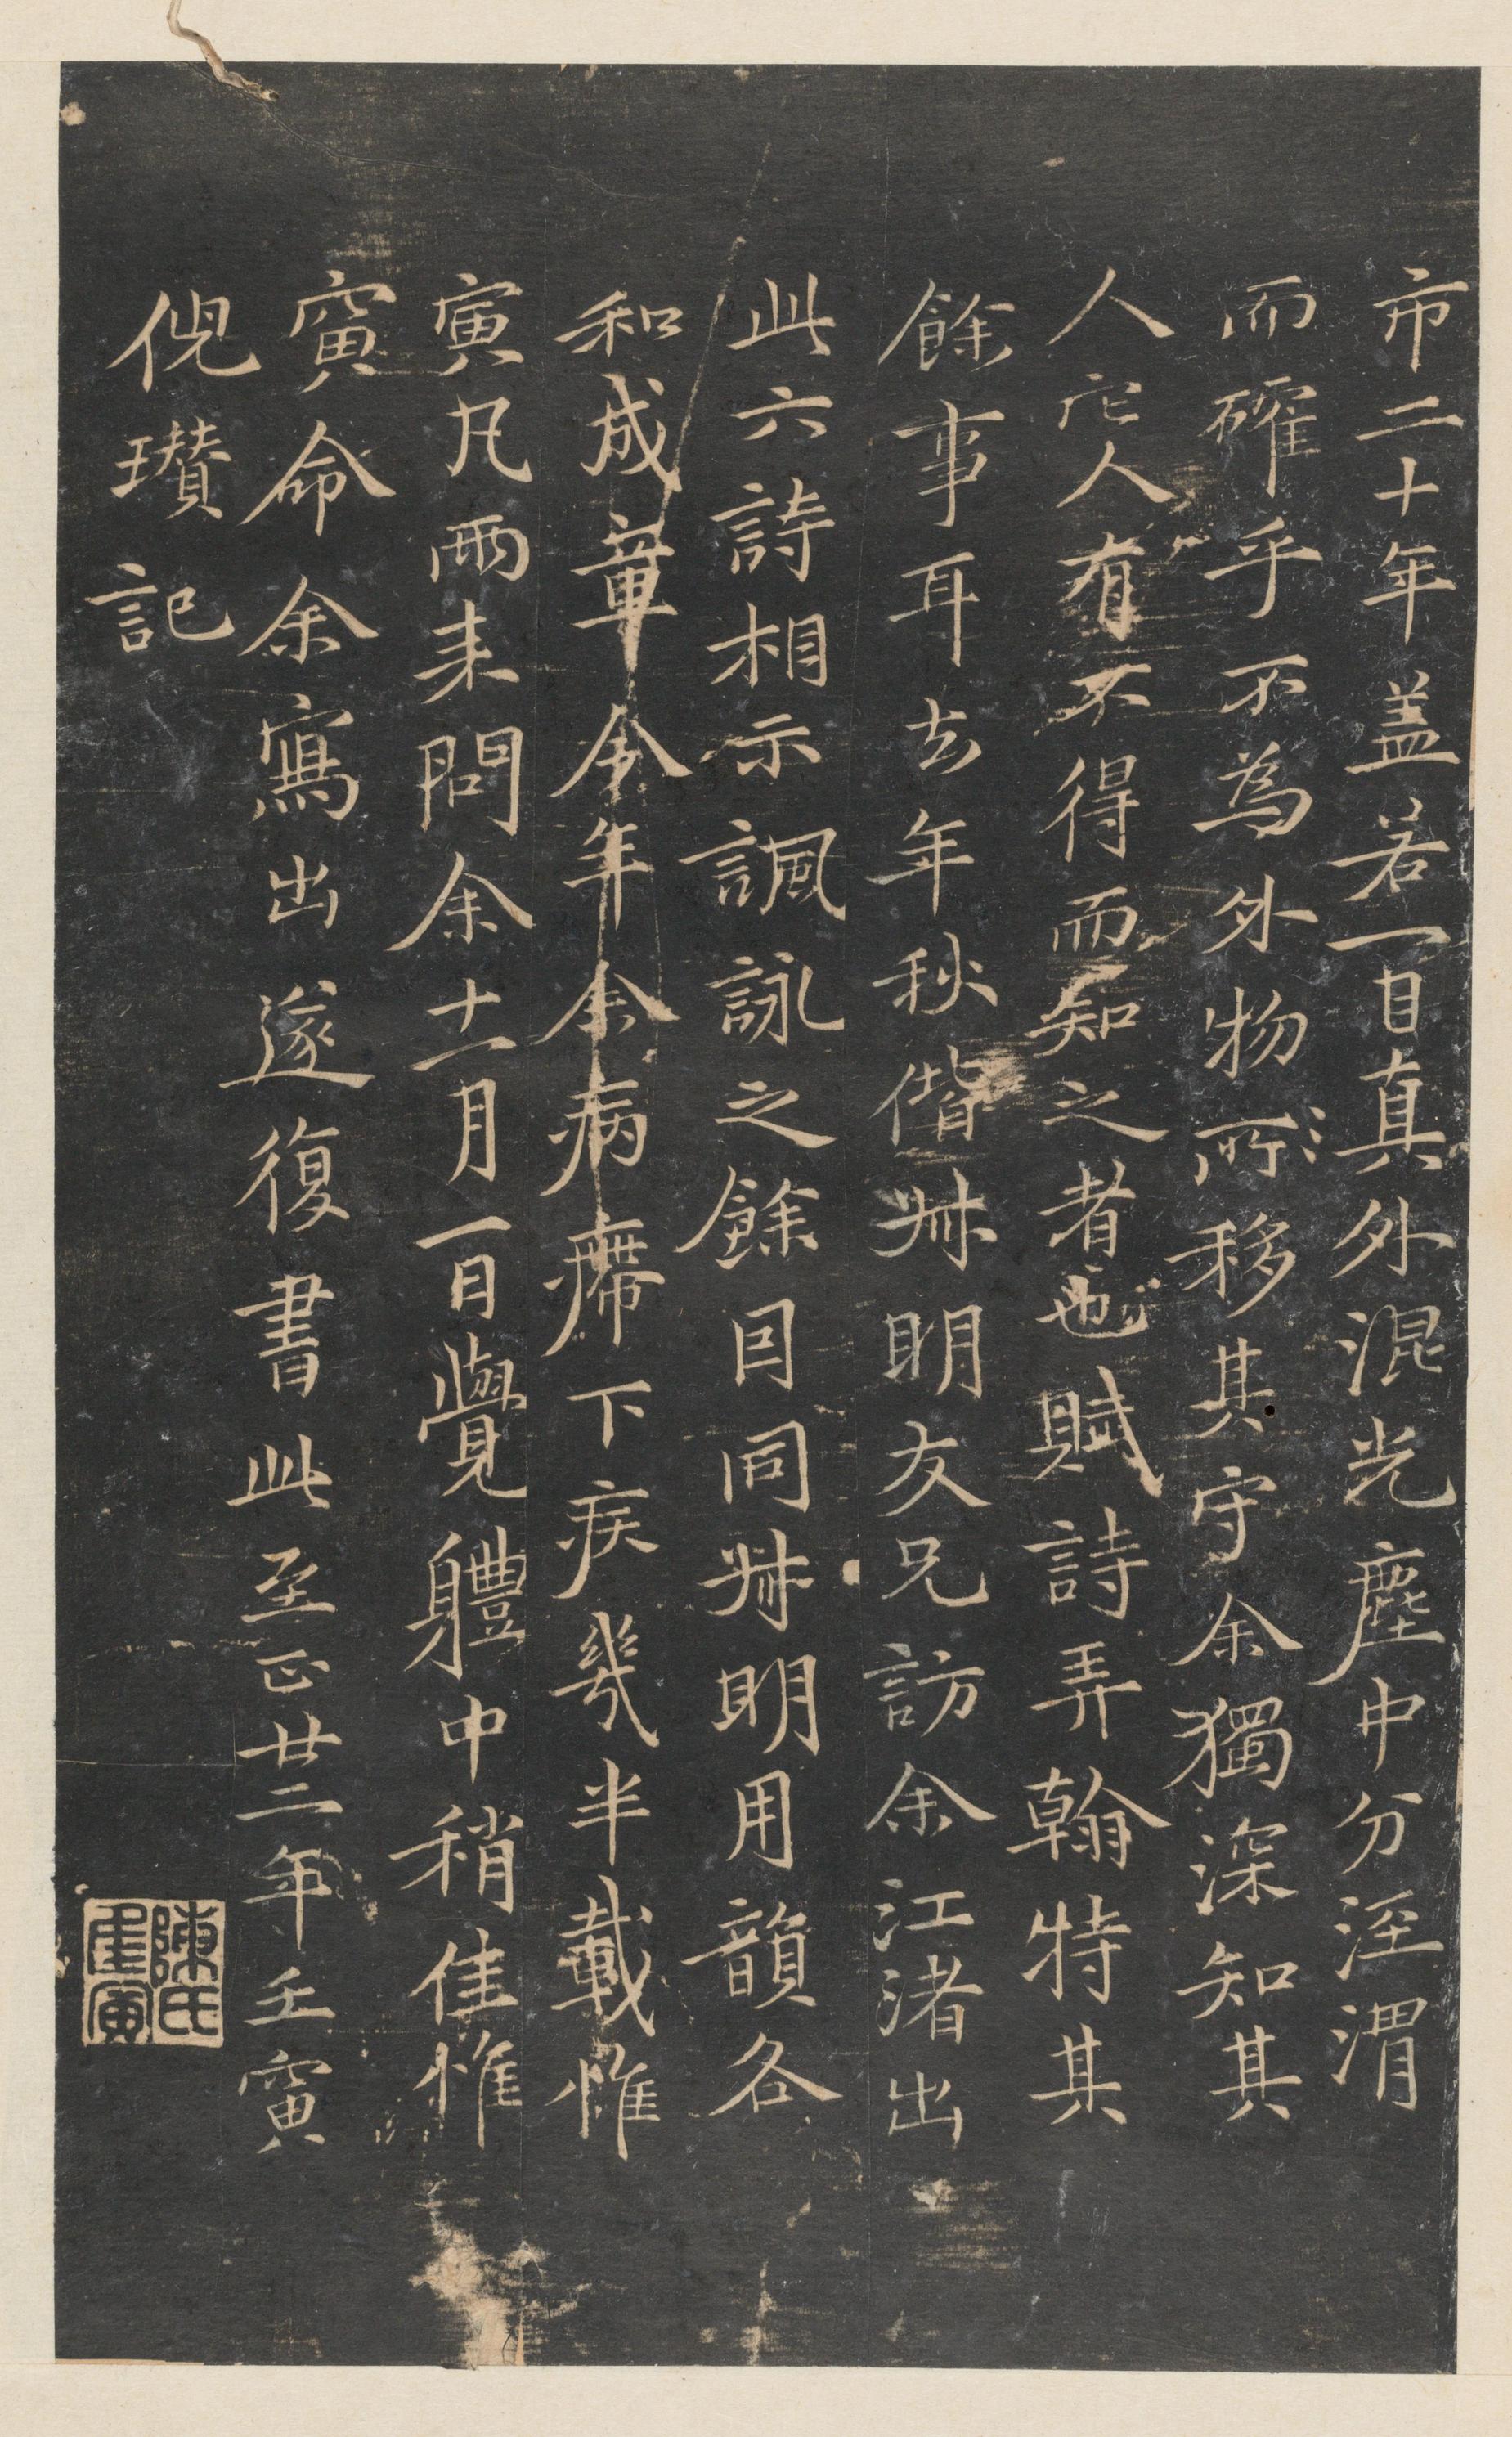 市二十年盖若一日真外混光塵中分涇渭
而確乎不為外物所移其守余獨深知其
人它人有不得而知之者也賦詩弄翰特其
餘事耳去年秋偕姊明友兄訪余江渚出
此六詩相示諷詠之餘因同姊明用韻各
和成章今年余病滯下疾幾半載惟
寅凡兩来問余十一月一日覺軆中稍佳惟
寅命余寫出遂復書此至正廿二年壬寅
倪瓚記
陳氏惟寅